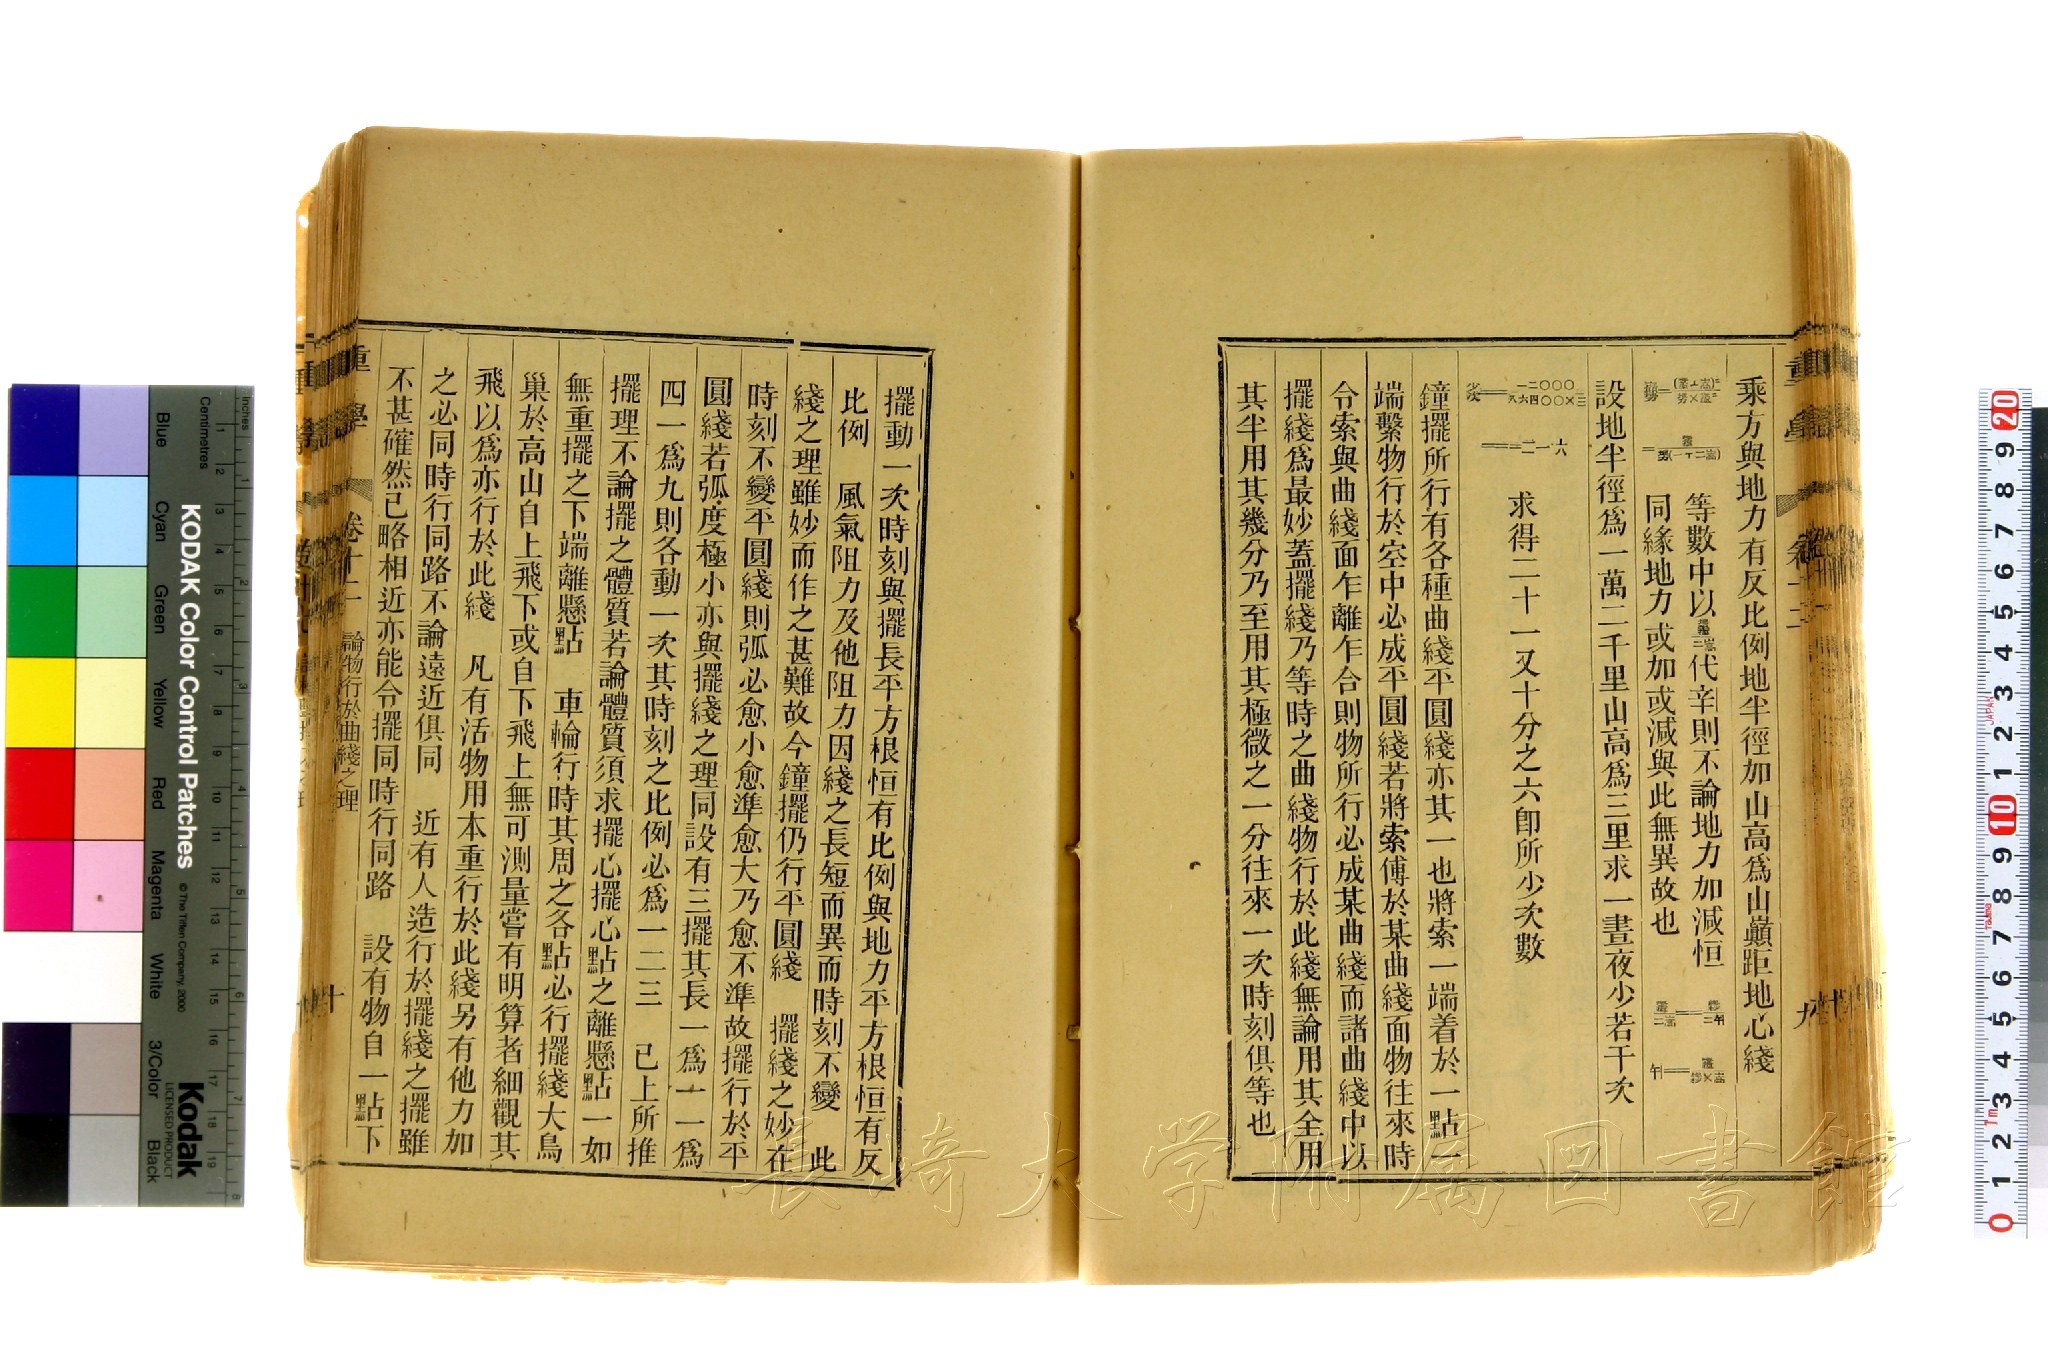 乘方與地力有反比例地半徑加山高爲山巔距地心綫
等數中以
代辛則不論地力加減恒
同緣地力或加或減與此無異故也
設地半徑爲一萬二千里山高爲三里求一晝夜少若干次
求得二十一又十分之六卽所少次數
鐘擺所行有各種曲綫平圓綫亦其一也將索一端着於一點一
端繫物行於空中必成平圓綫若將索傅於某曲綫面物往來時
令索與曲綫面乍離乍合則物所行必成某曲綫而諸曲綫中以
擺綫爲最妙蓋擺綫乃等時之曲綫物行於此綫無論用其全用
其半用其幾分乃至用其極微之一分往來一次時刻俱等也
擺動一次時刻與擺長平方根恒有比例與地力平方根恒有反
比例　風氣阻力及他阻力因綫之長短而異而時刻不變　此
綫之理雖妙而作之甚難故今鐘擺仍行平圓綫　擺綫之妙在
時刻不變平圓綫則弧必愈小愈準愈大乃愈不準故擺行於平
圓綫若弧度極小亦與擺綫之理同設有三擺其長一爲一一爲
四一爲九則各動一次其時刻之比例必爲一二三　已上所推
擺理不論擺之體質若論體質須求擺心擺心點之離懸點一如
無重擺之下端離懸點　車輪行時其周之各點必行擺綫大鳥
巢於高山自上飛下或自下飛上無可測量嘗有明算者細觀其
飛以爲亦行於此綫　凡有活物用本重行於此綫另有他力加
之必同時行同路不論遠近俱同　近有人造行於擺綫之擺雖
不甚確然已略相近亦能令擺同時行同路　設有物自一點下
重學
卷十二
論物行於曲綫之理
十
KODAK Color Control Patches
©The Tiffen Company, 2000
Kodak
LICENSED PRODUCT
Inches
Centimetres
Blue
Cyan
Green
Yellow
Red
Magenta
White
3/Color
Black
1 2 3 4 5 6 7 8 9 10 11 12 13 14 15 16 17 18 19
1 2 3 4 5 6 7 8
20 9 8 7 6 5 4 3 2 1 10 9 8 7 6 5 4 3 2 1 0
JAPAN
7m
長崎大学附属図書館